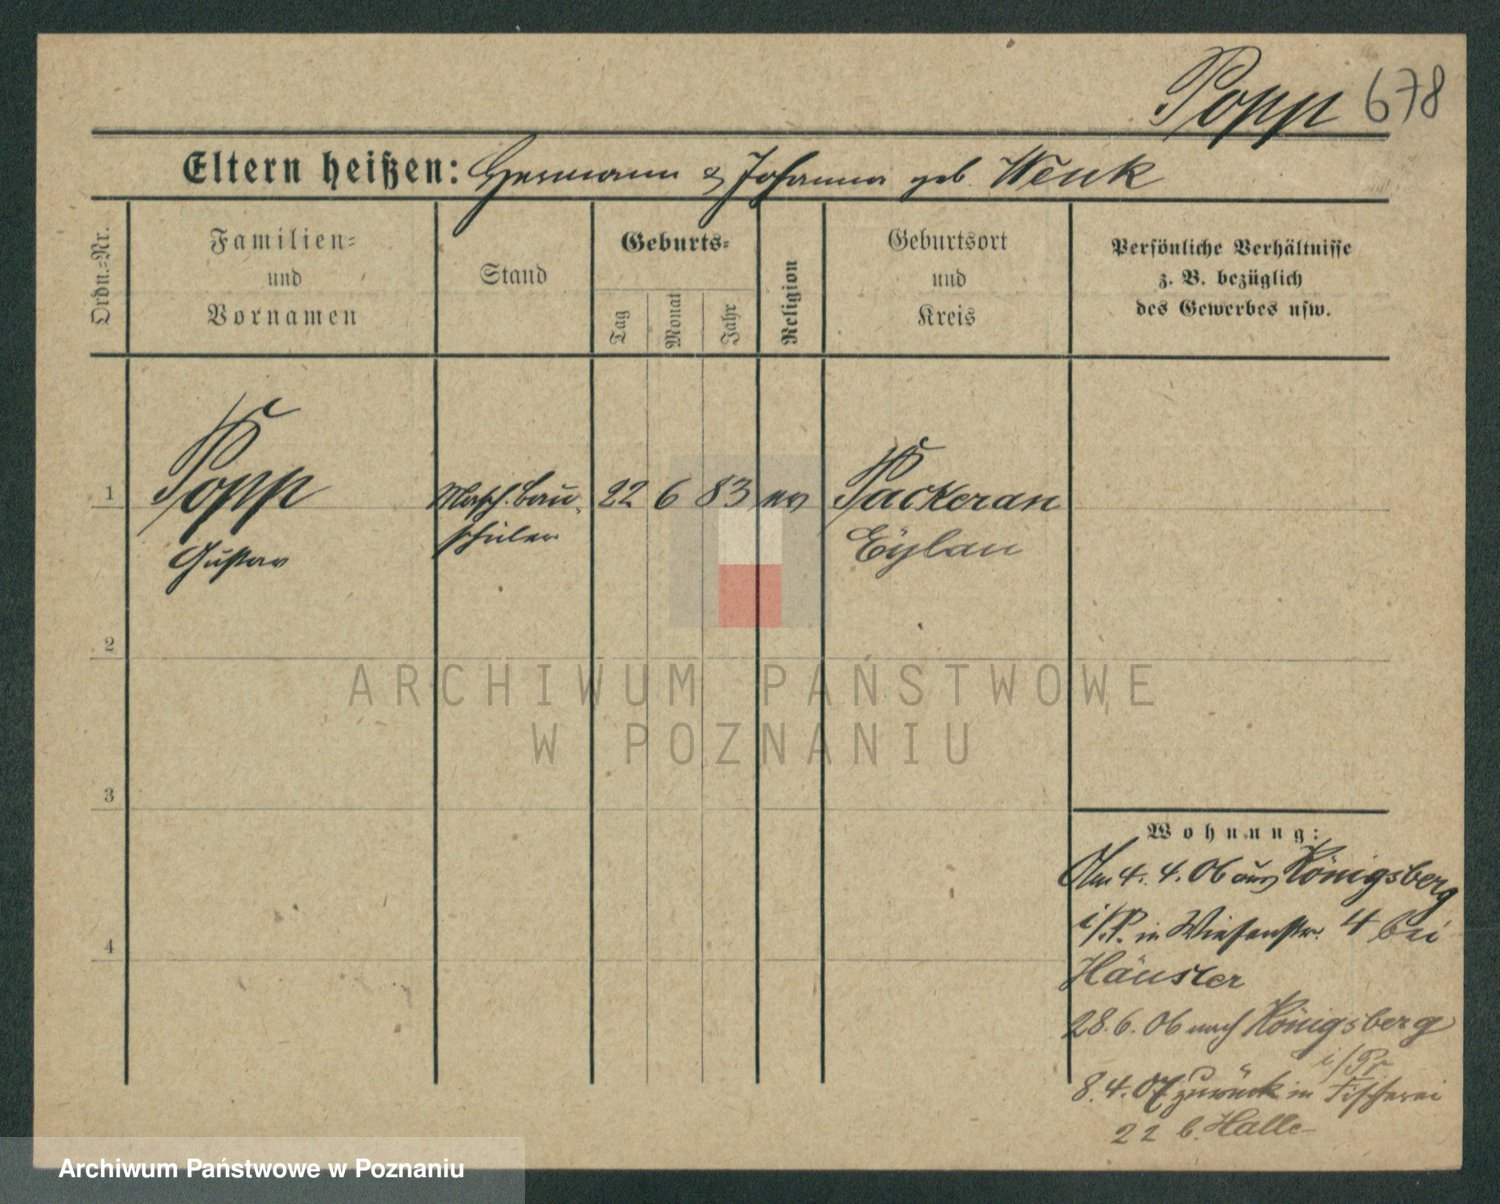 Popp 678
Eltern heißen: Hermann & Johanna geb. Wenk
Ordn.=Nr.
Familien=
und
Vornamen
Stand
Geburts=
Tag
Monat
Jahr
Religion
Geburtsort
und
Kreis
Persönliche Verhältnisse
z. B. bezüglich
des Gewerbes usw.
1
Popp
Gustav
Masch.bau-
schüler
22 6 83 ev
Packeran
Eylau
2
3
4
Wohnung:
Am 4. 4. 06 aus Königsberg
i/P. in Wiesenstr. 4 bei
Häusler
28. 6. 06 nach Königsberg
i/Pr
8. 4. 07 zurück in Fischerei
22 b. Halle
ARCHIWUM PAŃSTWOWE
W POZNANIU
Archiwum Państwowe w Poznaniu